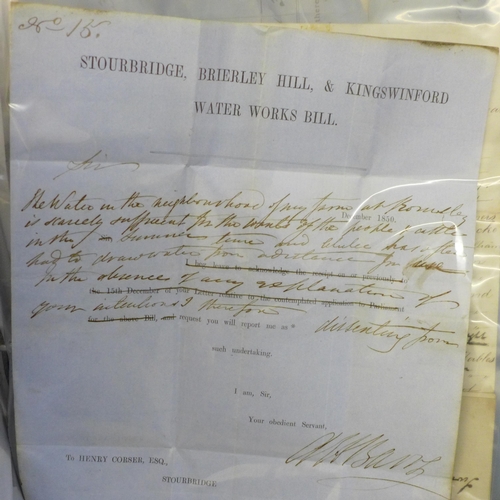 No 15.
STOURBRIDGE, BRIERLEY HILL, & KINGSWINFORD
WATER WORKS BILL.
Sir
The Water in the neighbourhood of my farm at Romsley
December 1850.
is scarcely sufficient for the wants of the people & cattle
in the summer time and
had to draw water from a distance for
I beg to acknowledge the receipt on or previously to
In the absence of any explanation of
the 15th December of your Letter relative to the contemplated application to Parliament
your intentions I therefore
for the above Bill, and request you will report me as "
dissenting from
such undertaking.
I am, Sir,
Your obedient Servant,
To HENRY CORSER, ESQ.,
STOURBRIDGE